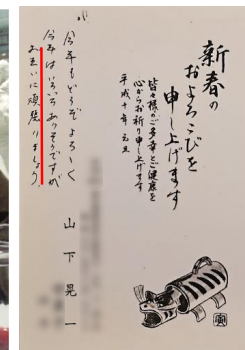 新春の
およろこびを
申し上げます
皆々様のご多幸とご健康を
心からお祈り申し上げます
平成十年 元旦
山下晃一
今年もどうぞよろしく
今年はいろいろありそうですが
お互いに頑張りましょう
寅